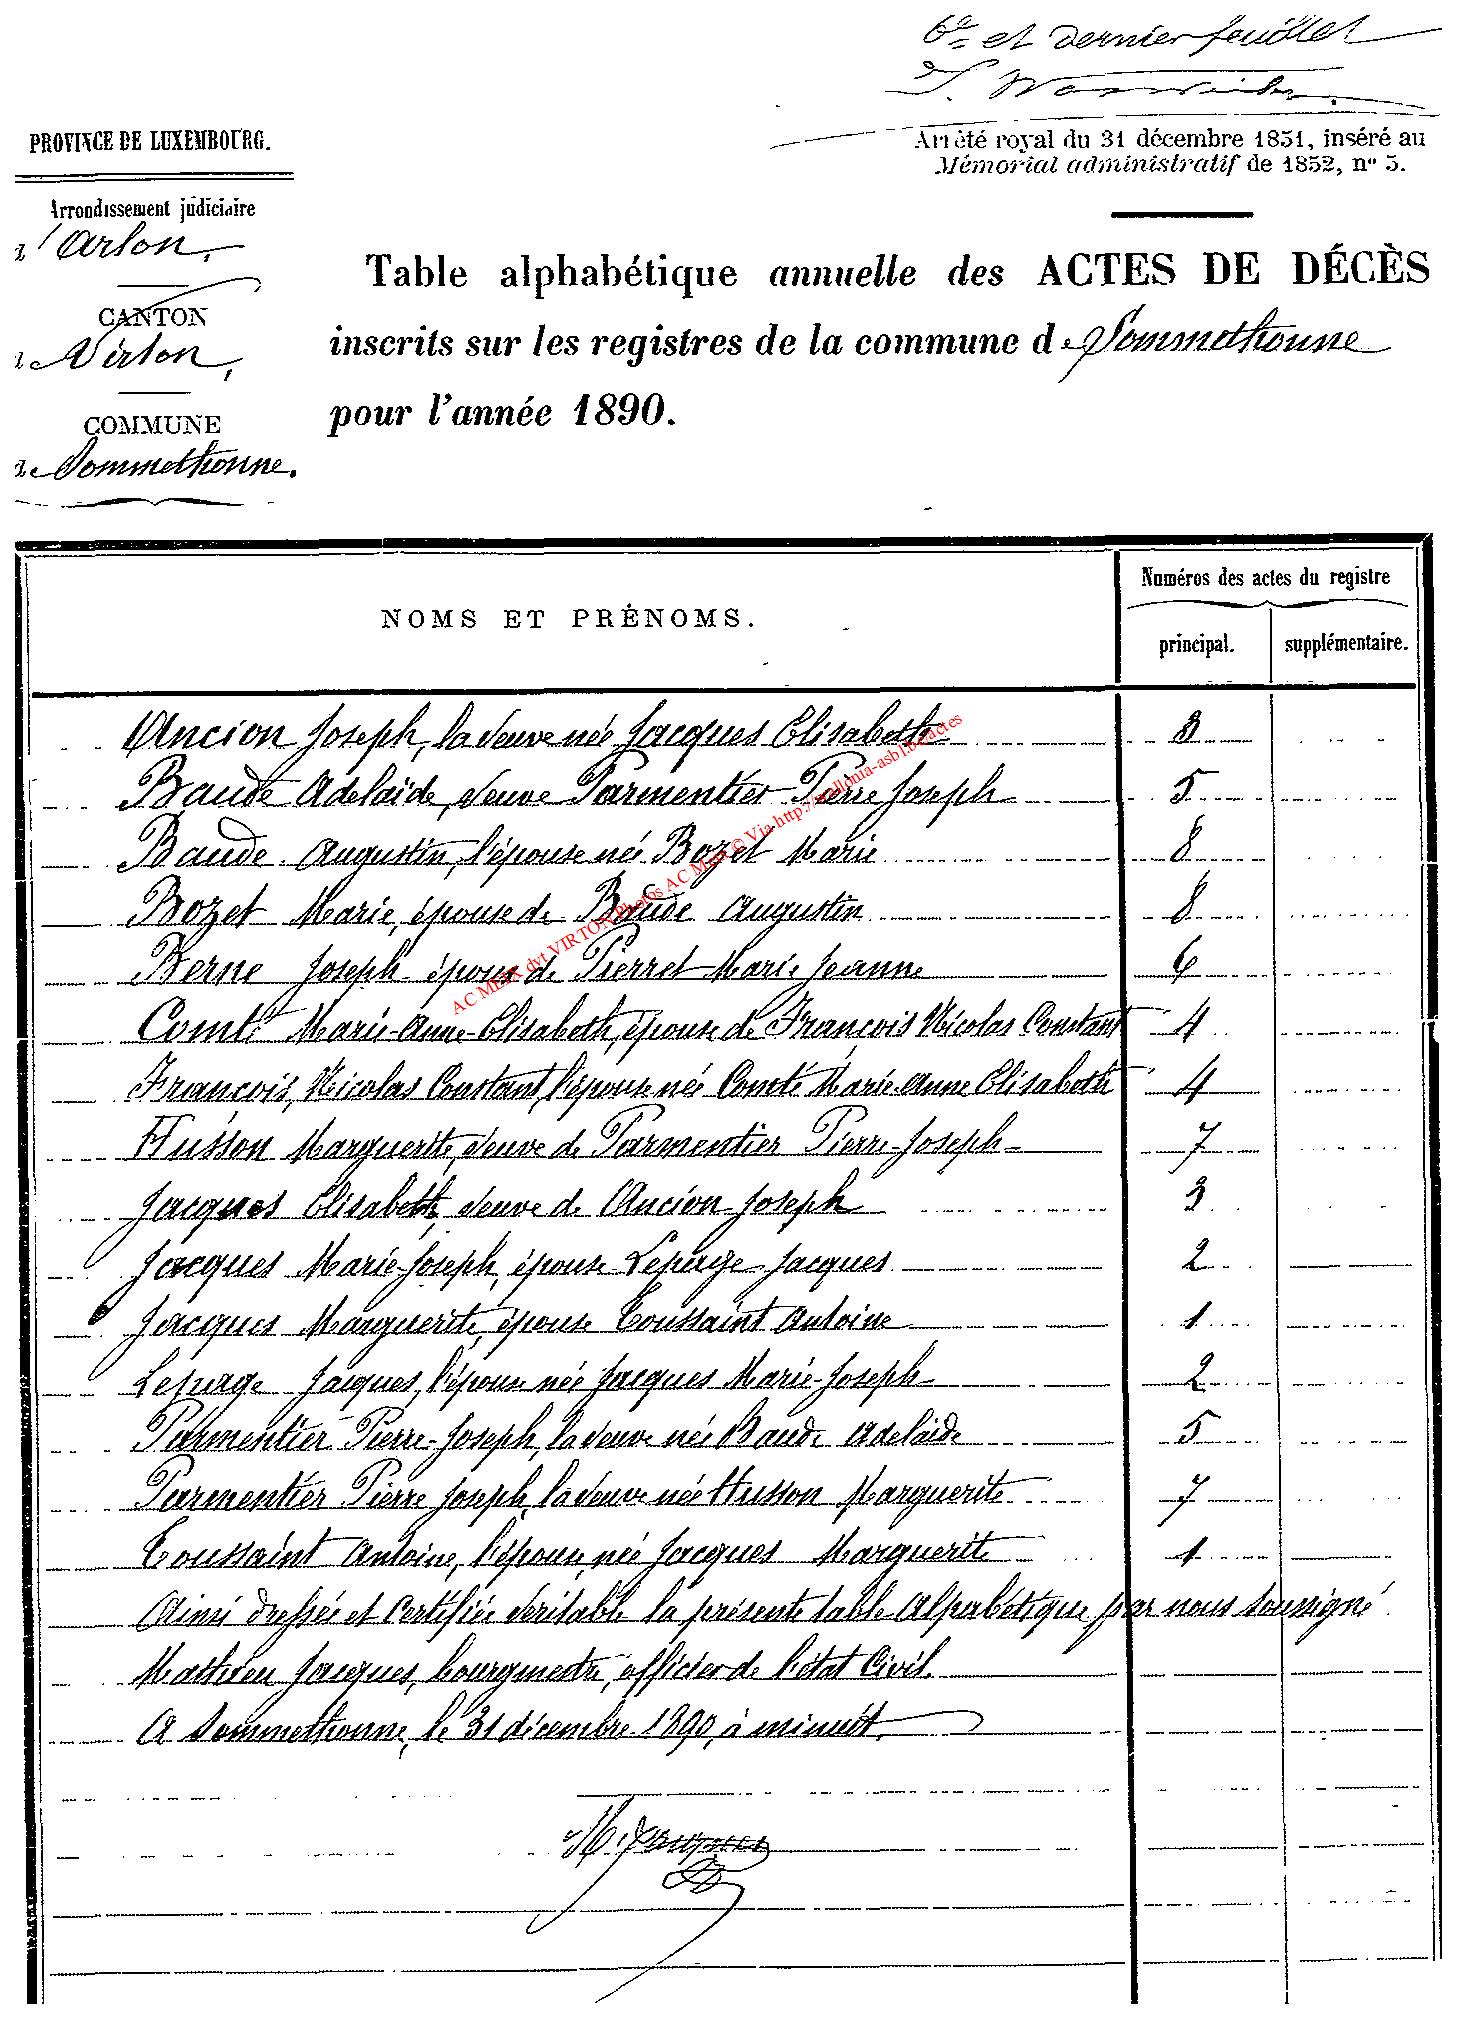 6e et dernier feuillet
PROVINCE DE LUXEMBOURG.
Arrêté royal du 31 décembre 1851, inséré au
Mémorial administratif de 1852, no 5.
Arrondissement judiciaire
d'Arlon,
CANTON
de Virton,
COMMUNE
de Sommethonne.
Table alphabétique annuelle des ACTES DE DÉCÈS
inscrits sur les registres de la commune de Sommethonne
pour l'année 1890.
NOMS ET PRÉNOMS.
Numéros des actes du registre
principal. supplémentaire.
Ancion Joseph, la veuve née Jacques Elisabeth 3
Baude Adelaïde, veuve Parmentier Pierre Joseph 5
Baude Augustin, l'épouse née Bozet Marie 8
Bozet Marie, épouse de Baude Augustin 8
Berne Joseph époux de Pierret Marie Jeanne 6
Comté Marie-Anne-Elisabeth, épouse de François Nicolas Constant 4
François, Nicolas Constant, l'épouse née Comté Marie-Anne Elisabeth 4
Husson Marguerite, veuve de Parmentier Pierre-Joseph 7
Jacques Elisabeth, veuve de Ancion Joseph 3
Jacques Marie-Joseph, épouse Lepage Jacques 2
Jacques Marguerite, épouse Toussaint Antoine 1
Lepage Jacques, l'épouse née Jacques Marie-Joseph 2
Parmentier Pierre-Joseph, la veuve née Baude Adelaïde 5
Parmentier Pierre Joseph, la veuve née Husson Marguerite 7
Toussaint Antoine, l'épouse née Jacques Marguerite 1
Ainsi dressée et certifiée véritable la présente table Alpabétique par nous soussigné
Mathieu Jacques, bourgmestre, officier de l'état Civil.
A Sommethonne, le 31 décembre 1890, à minuit.
M. Jacques
AC MEIX dvt VIRTON Photos AC Meix © Via http://wallonia-asbl.be/actes